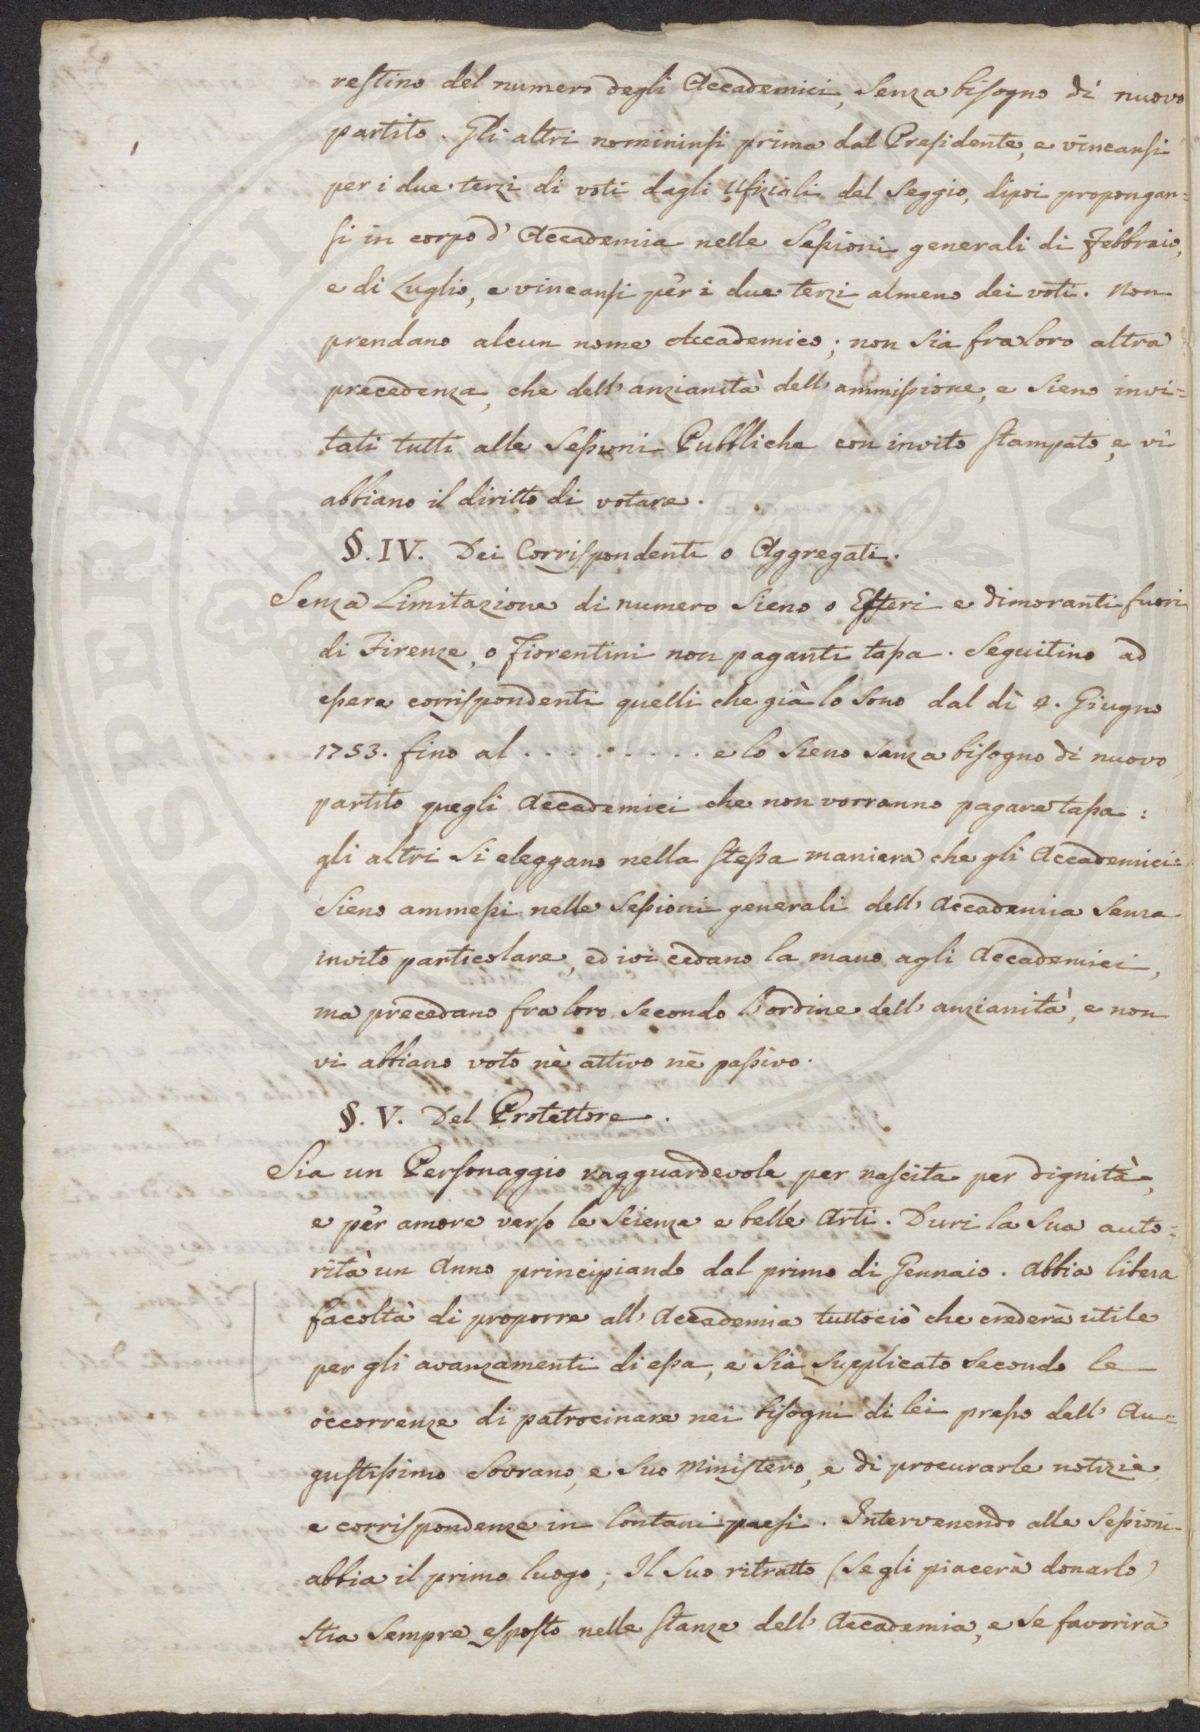 restino del numero degli Accademici, senza bisogno di nuovo
partito. Gli altri nomininsi prima dal Presidente, e vincansi
per i due terzi di voti dagli Ufiziali del Seggio, dipoi propongan=
si in corpo d' Accademia nelle Sessioni generali di Febbraio,
e di Luglio, e vincansi per i due terzi almeno dei voti. Non
prendano alcun nome Accademico; non sia fra loro altra
precedenza, che dell' anzianità dell' ammissione, e sieno invi=
tati tutti alle Sessioni Pubbliche con invito stampato, e vi
abbiano il diritto di votare.
§. IV. Dei Corrispondenti o Aggregati.
Senza Limitazione di numero sieno o Esteri e dimoranti fuori
di Firenze, o Fiorentini non paganti tassa. Seguitino ad
essere corrispondenti quelli che già lo sono dal dì 4. Giugno
1753. fino al . . . . . . . . . e lo sieno sanza bisogno di nuovo
partito quegli Accademici che non vorranno pagare tassa:
gli altri si eleggano nella stessa maniera che gli Accademici=
Sieno ammessi nelle Sessioni generali dell' Accademia senza
invito particolare, ed ivi cedano la mano agli Accademici,
ma precedano fra loro secondo l' ordine dell' anzianità, e non
vi abbiano voto nè attivo nè passivo.
§. V. Del Protettore.
Sia un Personaggio ragguardevole per nascita per dignità,
e per amore verso le Scienze e belle Arti. Duri la sua auto=
rità un Anno principiando dal primo di Gennaio. Abbia libera
facoltà di proporre all' Accademia tuttociò che crederà utile
per gli avanzamenti di essa, e sia supplicato secondo le
occorrenze di patrocinare nei bisogni di lei presso dell' Au=
gustissimo Sovrano, e suo Ministero, e di procurarle notizie
e corrispondenze in lontani paesi. Intervenendo alle Sessioni
abbia il primo luogo; Il suo ritratto (se gli piacerà donarlo)
stia sempre esposto nelle stanze dell' Accademia, e se favorirà
PROSPERITATI